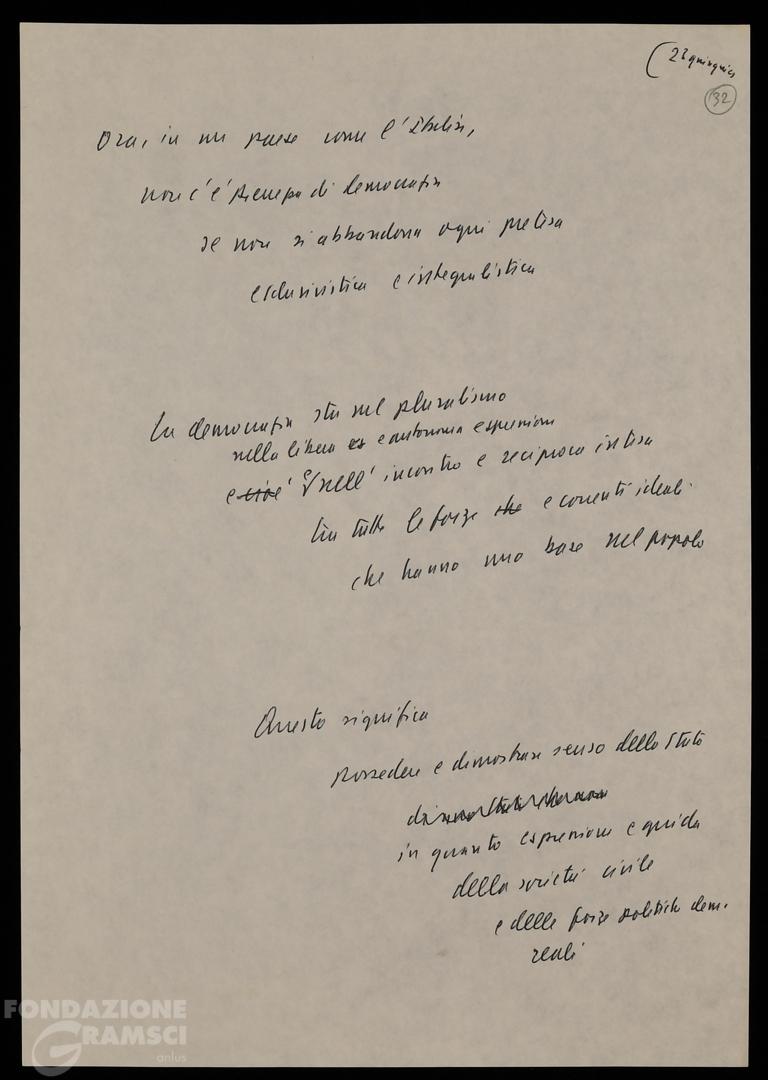 (23 quinquies
32
Ora, in un paese come l'Italia,
non c'è di democrazia
se non si abbandona ogni pretesa
esclusivistica e integralistica
La democrazia sta nel pluralismo
nella libera es e autonoma espressione
e cioè nell'incontro e reciproca intesa
tra tutte le forze che e correnti ideali
che hanno una base nel popolo
Questo significa
possedere e dimostrare senso dello Stato
di
in quanto espressione e guida
della società civile
e delle forze politiche dem.
reali
FONDAZIONE
GRAMSCI
onlus